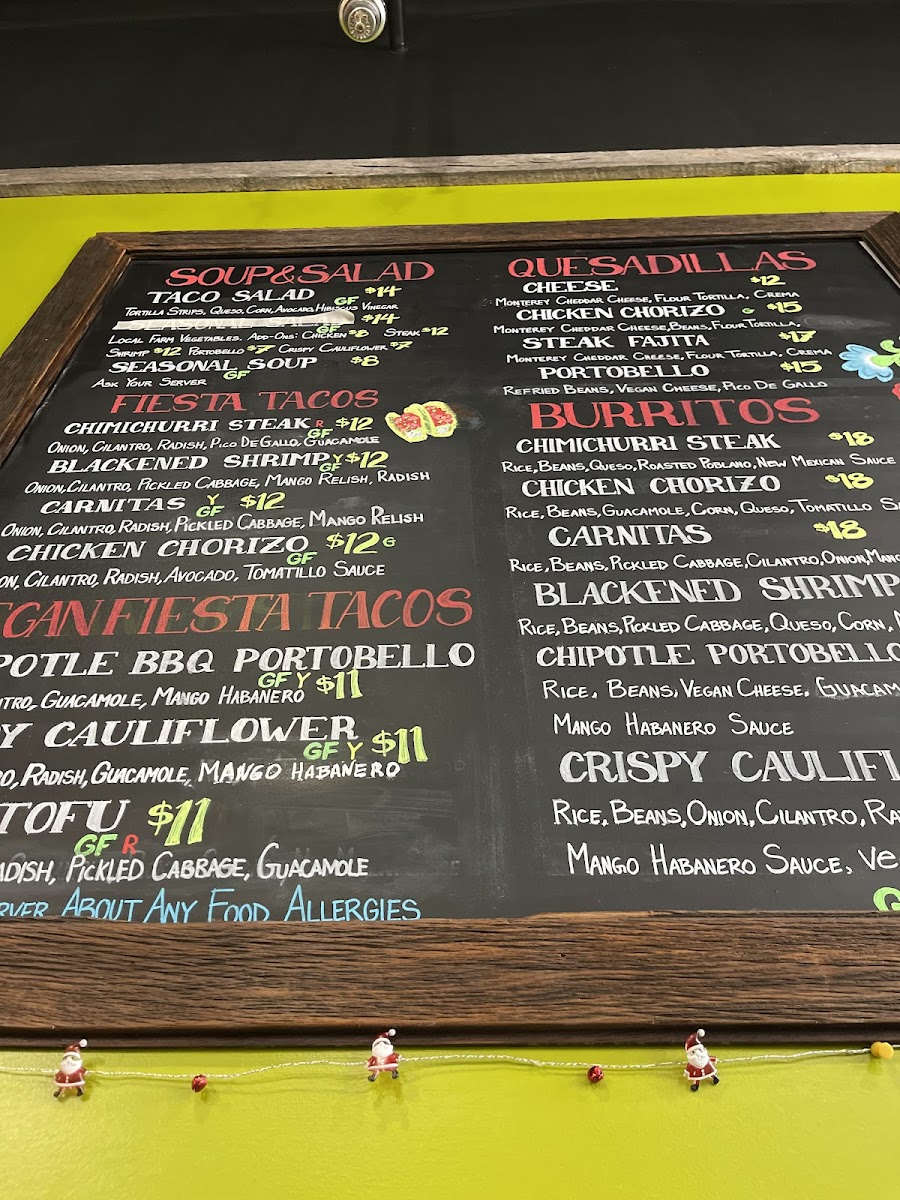 SOUP&SALAD
TACO SALAD GF $14
TORTILLA STRIPS, QUESO, CORN, AVOCADO, HIBISCUS VINEGAR
SEASONAL SALAD GF $14
LOCAL FARM VEGETABLES. ADD-ONS: CHICKEN $8 STEAK $12
SHRIMP $12 PORTOBELLO $7 CRISPY CAULIFLOWER $7
SEASONAL SOUP GF $8
ASK YOUR SERVER
FIESTA TACOS
CHIMICHURRI STEAK R GF $12
ONION, CILANTRO, RADISH, PICO DE GALLO, GUACAMOLE
BLACKENED SHRIMP Y GF $12
ONION, CILANTRO, PICKLED CABBAGE, MANGO RELISH, RADISH
CARNITAS Y GF $12
ONION, CILANTRO, RADISH, PICKLED CABBAGE, MANGO RELISH
CHICKEN CHORIZO GF $12 G
ON, CILANTRO, RADISH, AVOCADO, TOMATILLO SAUCE
GAN FIESTA TACOS
POTLE BBQ PORTOBELLO
GF Y $11
NTRO, GUACAMOLE, MANGO HABANERO
Y CAULIFLOWER
GF Y $11
O, RADISH, GUACAMOLE, MANGO HABANERO
TOFU $11
GF R
ADISH, PICKLED CABBAGE, GUACAMOLE
RVER ABOUT ANY FOOD ALLERGIES
QUESADILLAS
CHEESE $12
MONTEREY CHEDDAR CHEESE, FLOUR TORTILLA, CREMA
CHICKEN CHORIZO G $15
MONTEREY CHEDDAR CHEESE, BEANS, FLOUR TORTILLA,
STEAK FAJITA $17
MONTEREY CHEDDAR CHEESE, FLOUR TORTILLA, CREMA
PORTOBELLO $15
REFRIED BEANS, VEGAN CHEESE, PICO DE GALLO
BURRITOS
CHIMICHURRI STEAK $18
RICE, BEANS, QUESO, ROASTED POBLANO, NEW MEXICAN SAUCE
CHICKEN CHORIZO $18
RICE, BEANS, GUACAMOLE, CORN, QUESO, TOMATILLO SA
CARNITAS $18
RICE, BEANS, PICKLED CABBAGE, CILANTRO, ONION, MANG
BLACKENED SHRIMP
RICE, BEANS, PICKLED CABBAGE, QUESO, CORN,
CHIPOTLE PORTOBELLO
RICE, BEANS, VEGAN CHEESE, GUACAM
MANGO HABANERO SAUCE
CRISPY CAULIFL
RICE, BEANS, ONION, CILANTRO, RA
MANGO HABANERO SAUCE, VE